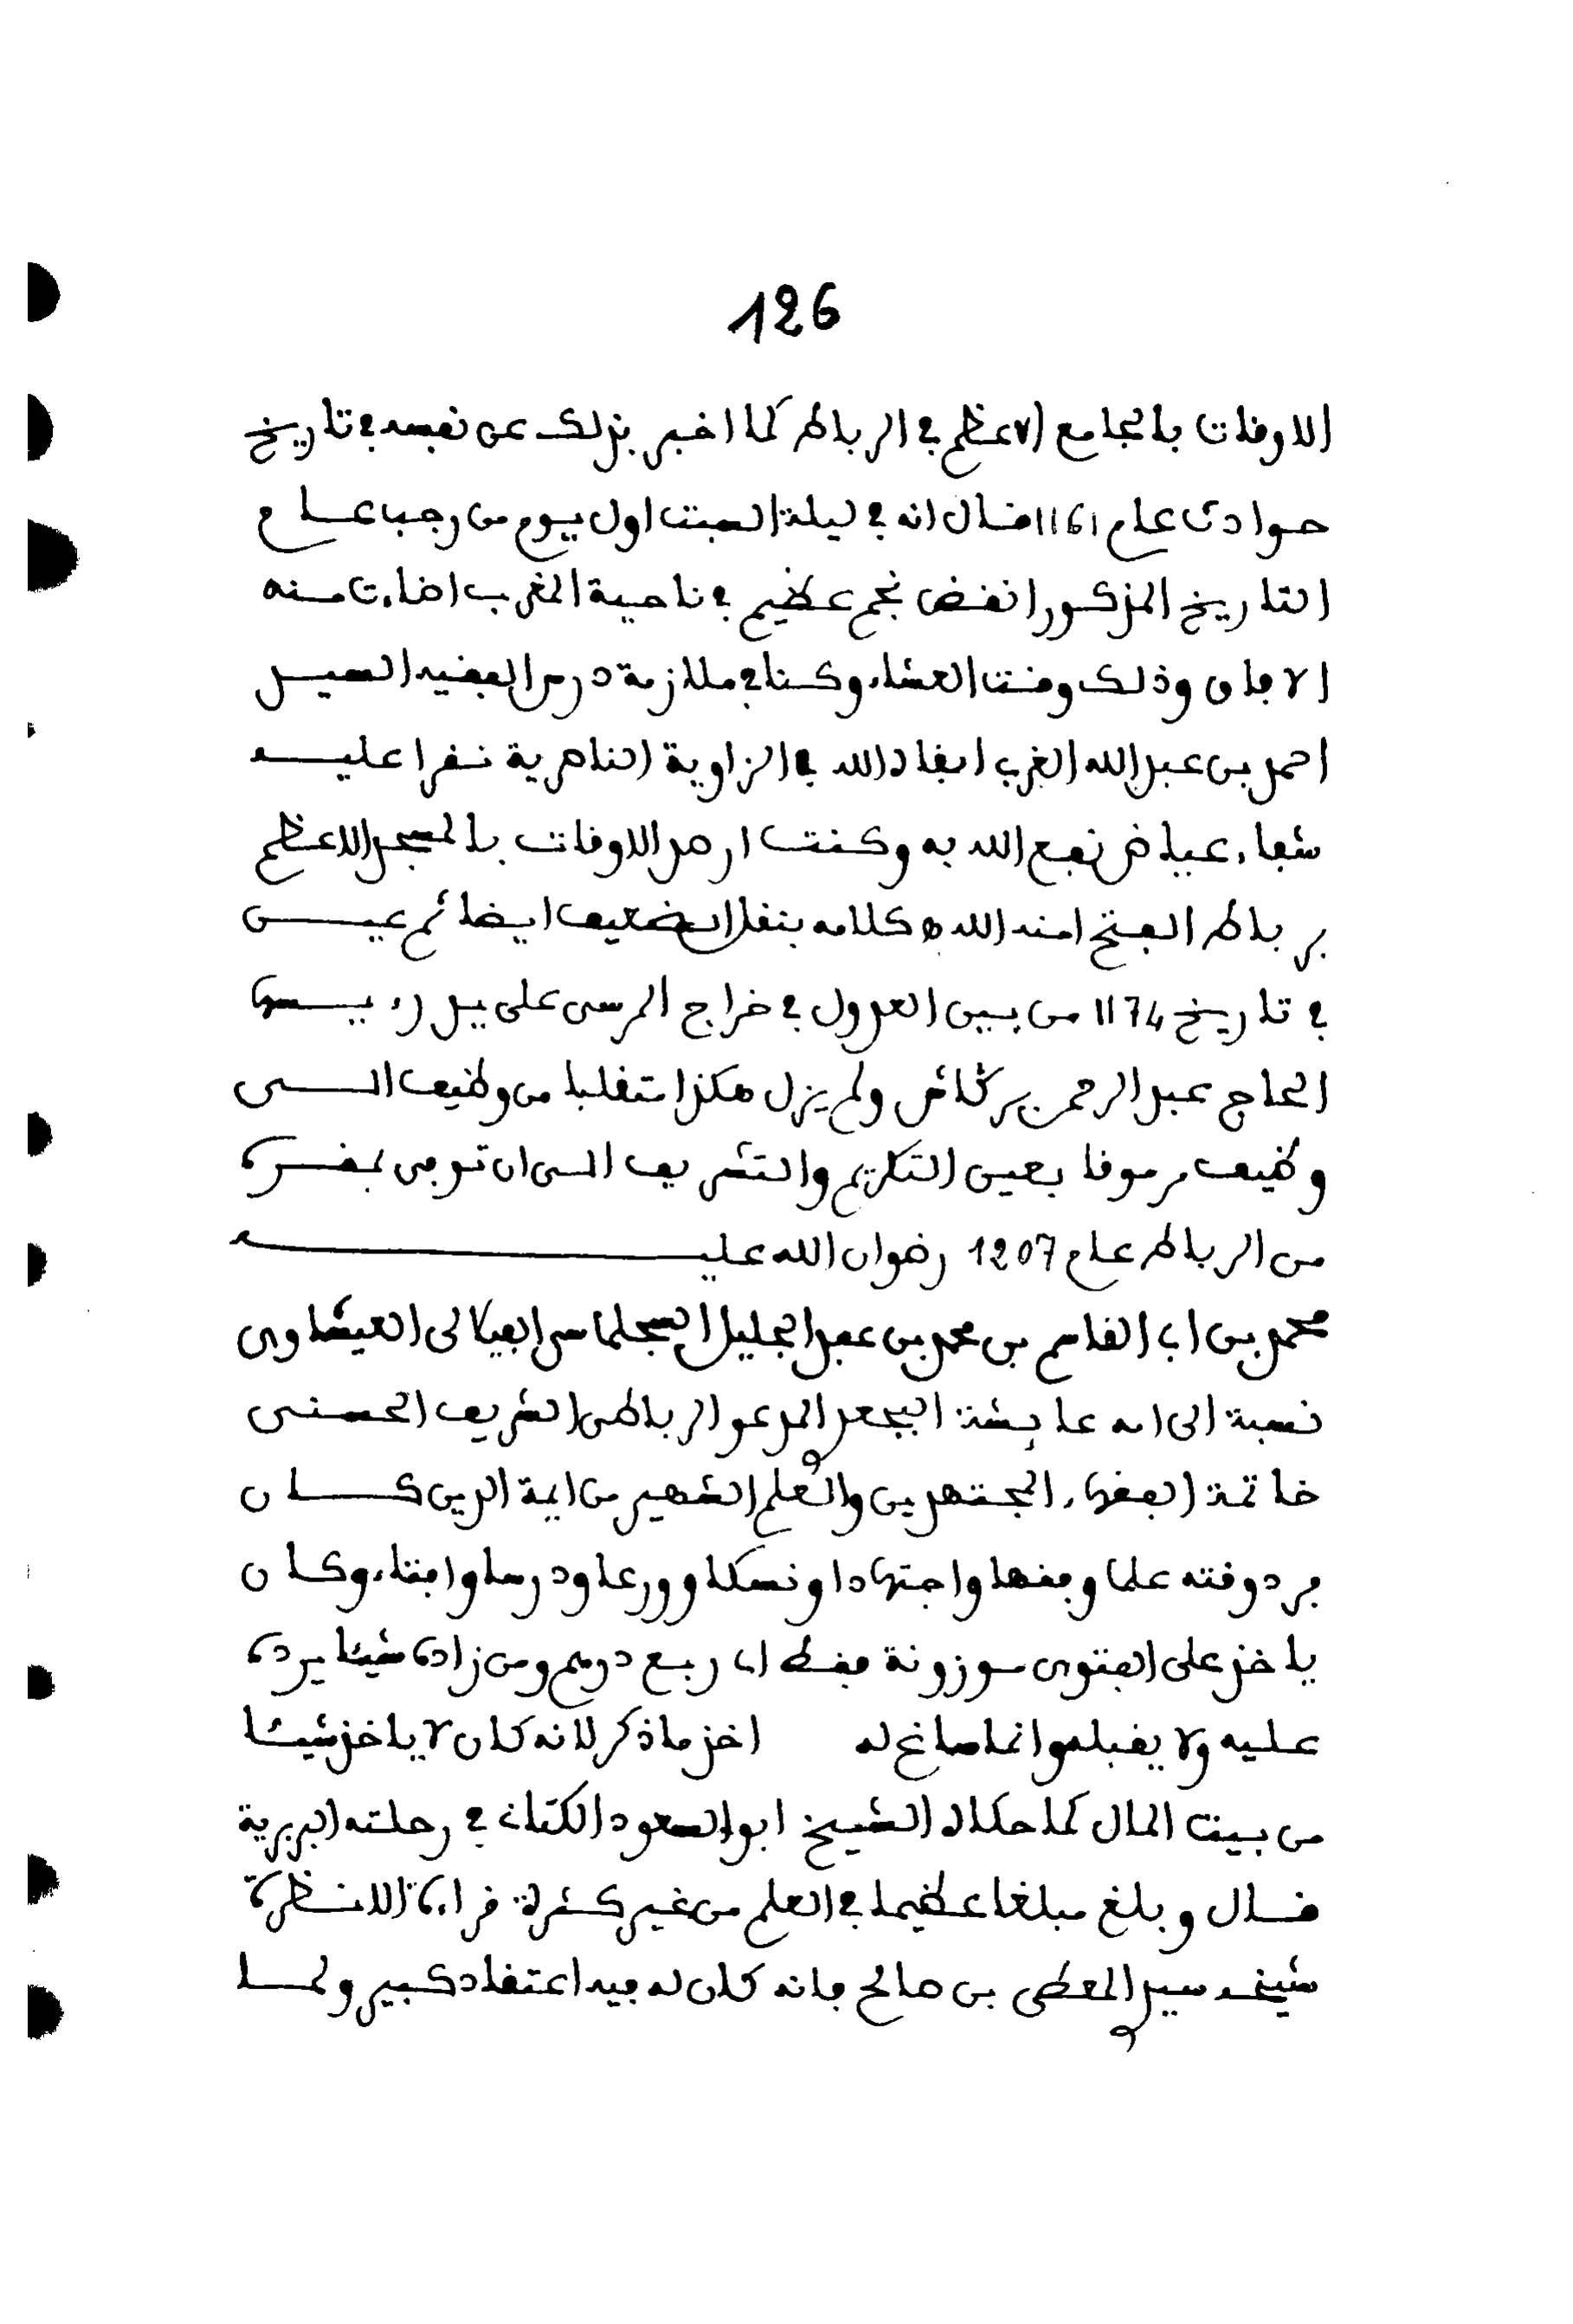 126
الاوقات بالجامع الاعظم في الرباط كما اخبر بذلك عن نفسه في تاريخ
حوادث عام 1161 فقال انه في ليلة السبت اول يوم من رجب عام
التاريخ المذكور انقض نجم عظيم في ناحية المغرب اضاءت منه
الافاق وذلك وقت العشاء وكنا في ملازمة درس الفقيه السيد
احمد بن عبد الله الغربي ابقاه الله في الزاوية الناصرية نقرا عليه
شفاء عياض نفع الله به وكنت ارصد الاوقات بالمسجد الاعظم
برباط الفتح امنه الله ه كلامه بنقل الضعيف ايضا ثم عين
في تاريخ 1174 من بين العدول في خراج المرسى على يد رءيسها
الحاج عبد الرحمن بركاش ولم يزل هكذا متقلبا من وظيف الى
وظيف مرموقا بعين التكريم والتشريف الى ان توفي بمقره
من الرباط عام 1207 رضوان الله عليه
محمد بن ابي القاسم بن محمد بن عبد الجليل السجلماسي الفيلالي العيشاوي
نسبة الى امه عايشة البجعد المدعو الرباطي الشريف الحسني
خاتمة الفقهاء المجتهدين والعلم الشهير من ايمة الدين كان
فرد وقته علما وفقها واجتهادا ونسكا وورعا ودرسا وافتاء وكان
ياخذ على الفتوى موزونة فقط اي ربع درهم ومن زاده شيئا يرده
عليه ولا يقبله وانما ساغ له اخذ ما ذكر لانه كان لا ياخذ شيئا
من بيت المال كما حكاه الشيخ ابو السعود الكتاني في رحلته البربرية
قال وبلغ مبلغا عظيما في العلم من غير كثرة قراءة الا نظرة
شيخه سيدي المعطي بن صالح فانه كان له فيه اعتقاد كبير ولما